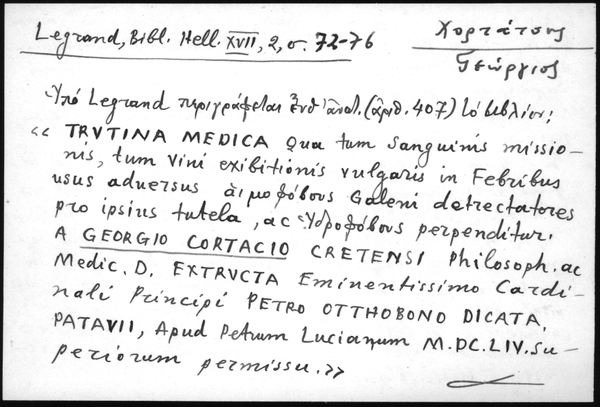 Legrand, Bibl. Hell. XVII, 2, σ. 72-76
Χορτάτσης
Γεώργιος
Ὑπό Legrand περιγράφεται ἐνθ' ἀνωτ. (ἀριθ. 407) τό βιβλίον:
« TRVTINA MEDICA Qua tum Sanguinis missio-
nis, tum vini exibitionis vulgaris in Febribus
usus adversus αἱμοφόβους Galeni detrectatores
pro ipsius tutela, ac Ὑδροφόβους perpenditur.
A GEORGIO CORTACIO CRETENSI Philosoph. ac
Medic. D. EXTRVCTA Eminentissimo Cardi-
nali Principi PETRO OTTHOBONO DICATA,
PATAVII, Apud Petrum Lucianum M.DC.LIV. Su-
periorum permissu. »